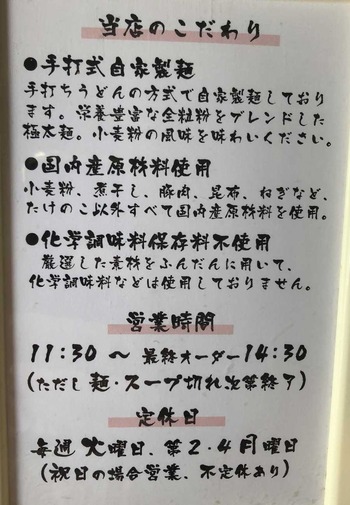 当店のこだわり
●手打式自家製麺
手打ちうどんの方式で自家製麺しており
ます。栄養豊富な全粒粉をブレンドした
極太麺。小麦粉の風味を味わいください。
●国内産原材料使用
小麦粉、煮干し、豚肉、昆布、ねぎなど、
たけのこ以外すべて国内産原材料を使用。
●化学調味料保存料不使用
厳選した素材をふんだんに用いて、
化学調味料などは使用しておりません。
営業時間
11:30 〜 最終オーダー14:30
(ただし麺・スープ切れ次第終了)
定休日
毎週 火曜日、第2・4月曜日
(祝日の場合営業、不定休あり)